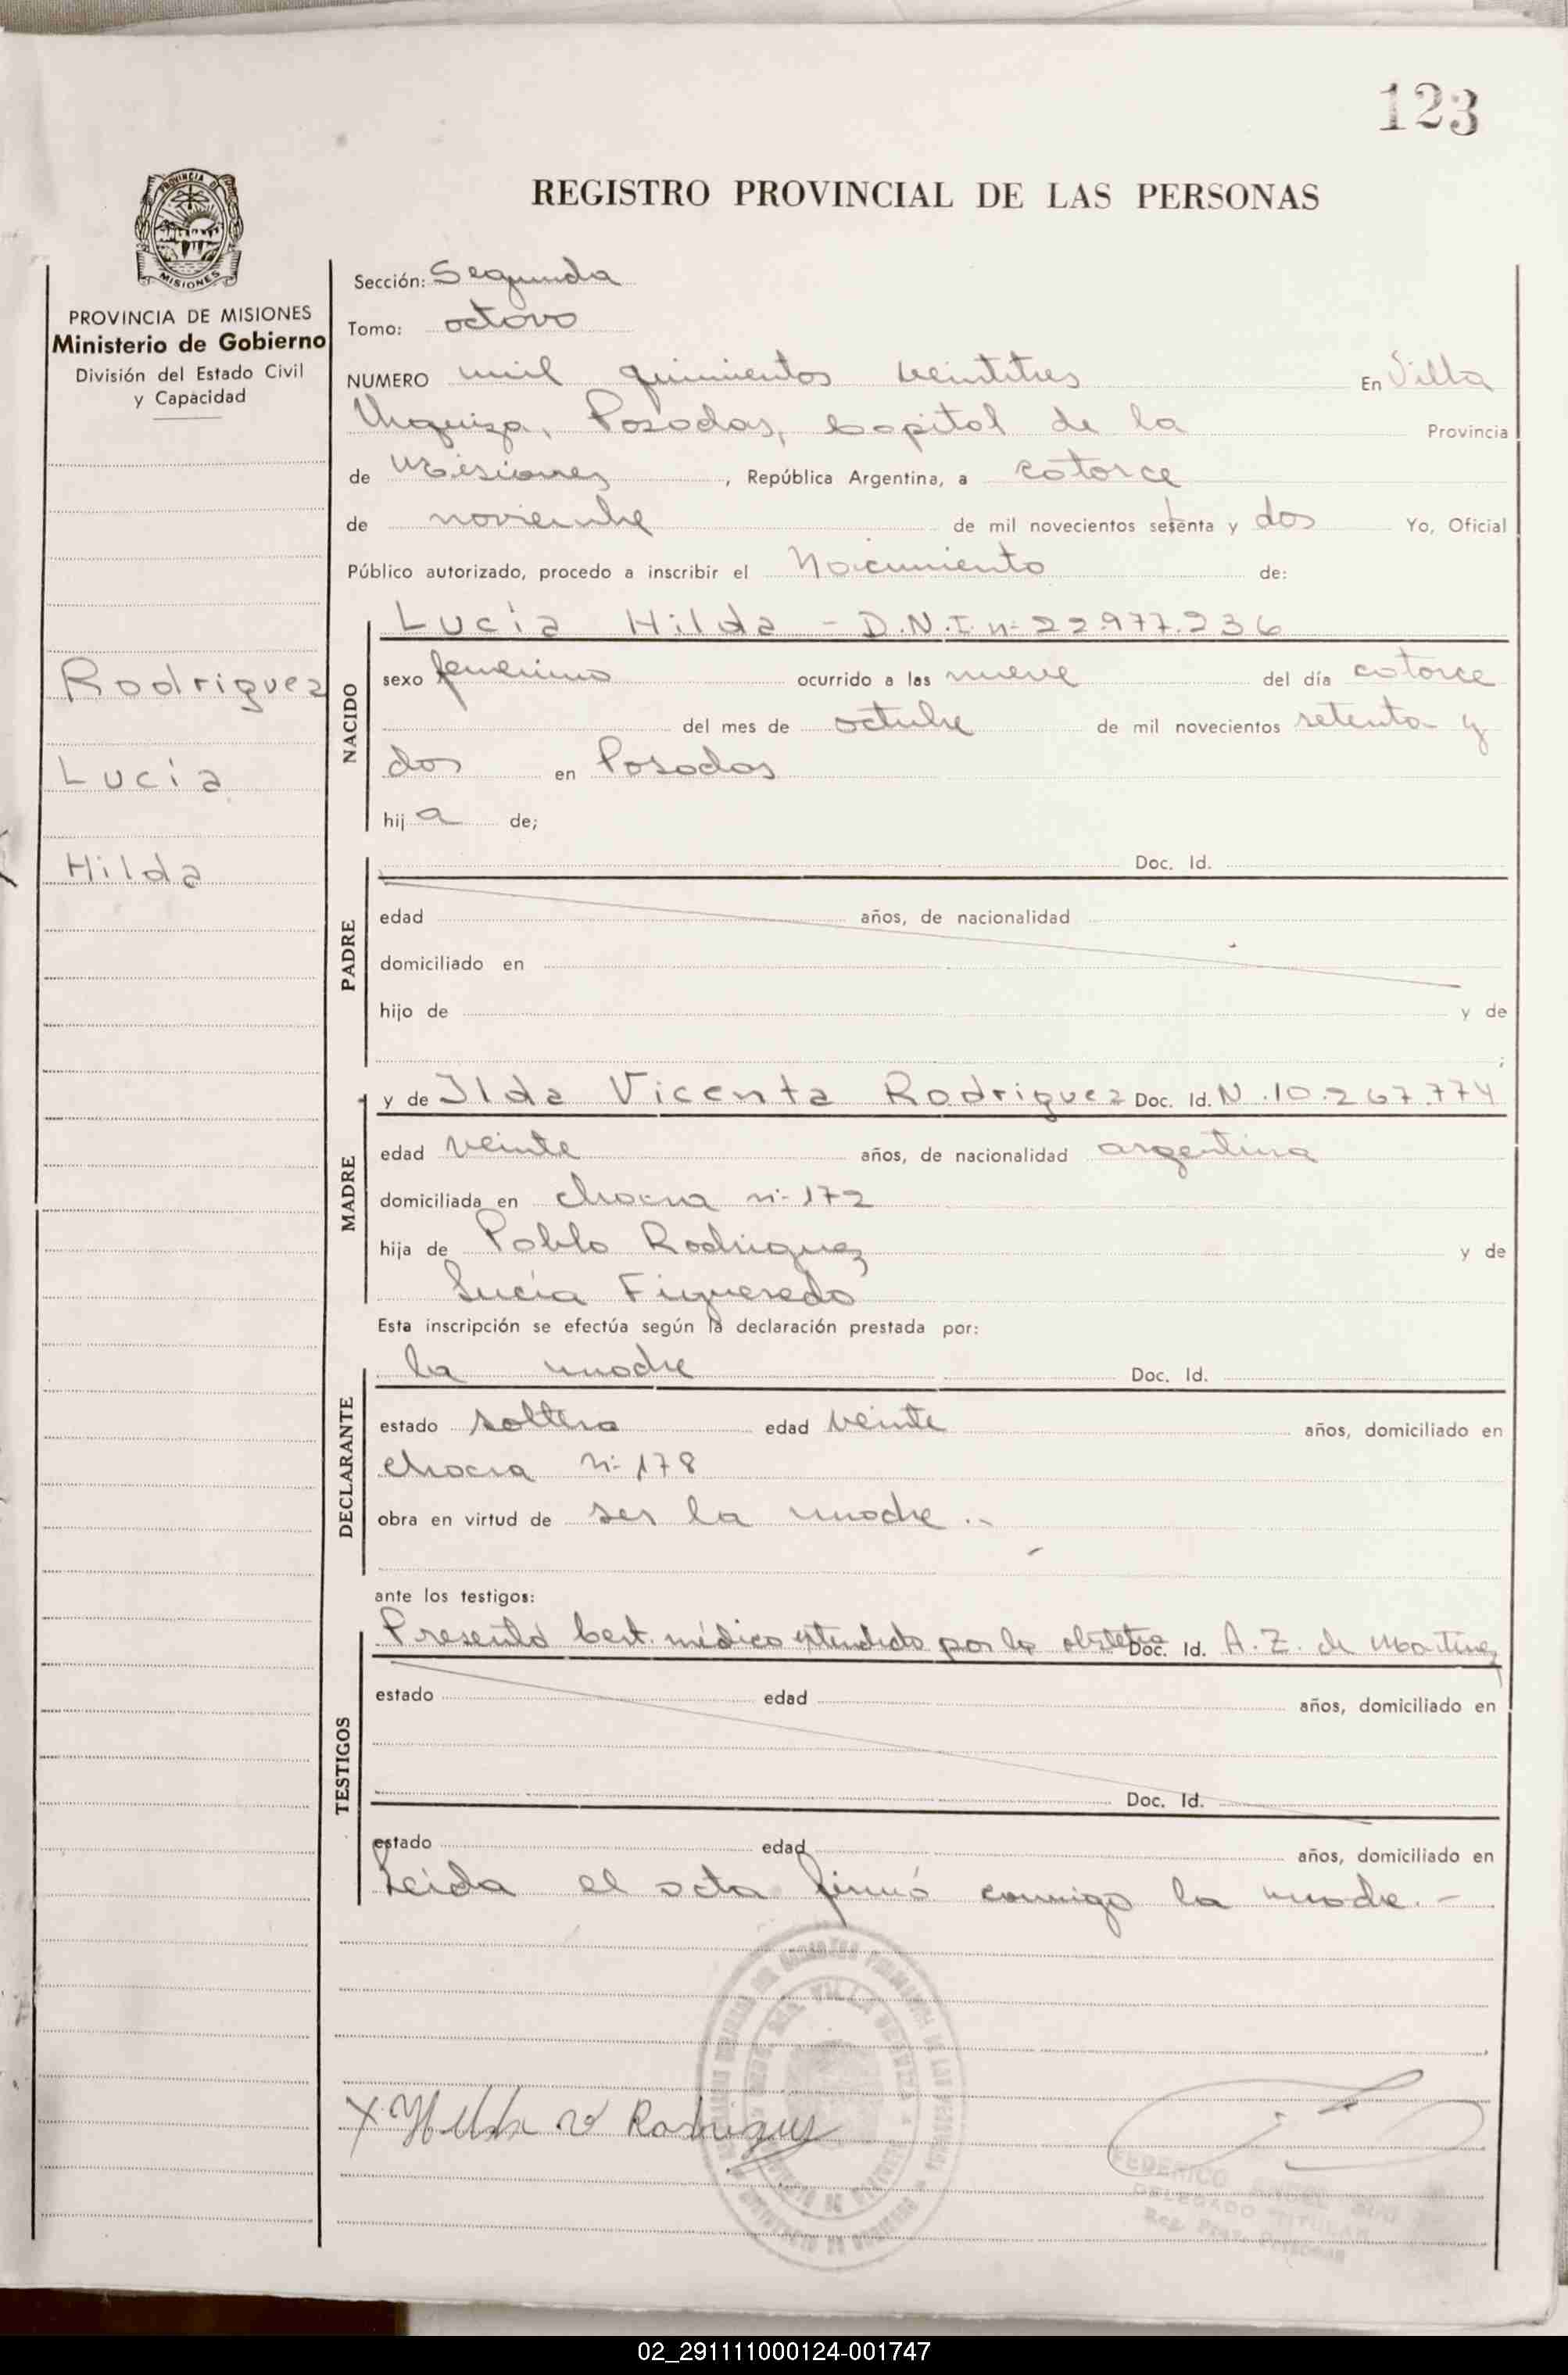 123
REGISTRO PROVINCIAL DE LAS PERSONAS
PROVINCIA DE MISIONES
Ministerio de Gobierno
División del Estado Civil
y Capacidad
Rodriguez
Lucía
Hilda
Sección: Segunda
Tomo: octavo
NUMERO mil quinientos veintitres En Villa
Urquiza, Posadas, capital de la Provincia
de Misiones, República Argentina, a catorce
de noviembre de mil novecientos setenta y dos Yo, Oficial
Público autorizado, procedo a inscribir el Nacimiento de:
NACIDO
Lucía Hilda - D.N.I. nº 22.977.236
sexo femenino ocurrido a las nueve del día catorce
del mes de octubre de mil novecientos setenta y
dos en Posadas
hija de;
PADRE
Doc. Id.
edad años, de nacionalidad
domiciliado en
hijo de y de
;
MADRE
y de Ilda Vicenta Rodriguez Doc. Id. N. 10.267.774
edad veinte años, de nacionalidad argentina
domiciliada en chacra nº 172
hija de Pablo Rodriguez y de
Lucía Figueredo
Esta inscripción se efectúa según la declaración prestada por:
DECLARANTE
la madre Doc. Id.
estado soltera edad veinte años, domiciliado en
chacra nº 178
obra en virtud de ser la madre.-
ante los testigos:
TESTIGOS
Presentó Cert. médico extendido por la obstetra Doc. Id. A. Z. de Martinez
estado edad años, domiciliado en
Doc. Id.
estado edad años, domiciliado en
Leida el acta firmó conmigo la madre.-
X Hilda V Rodriguez
FEDERICO
DELEGADO TITULAR
02_291111000124-001747